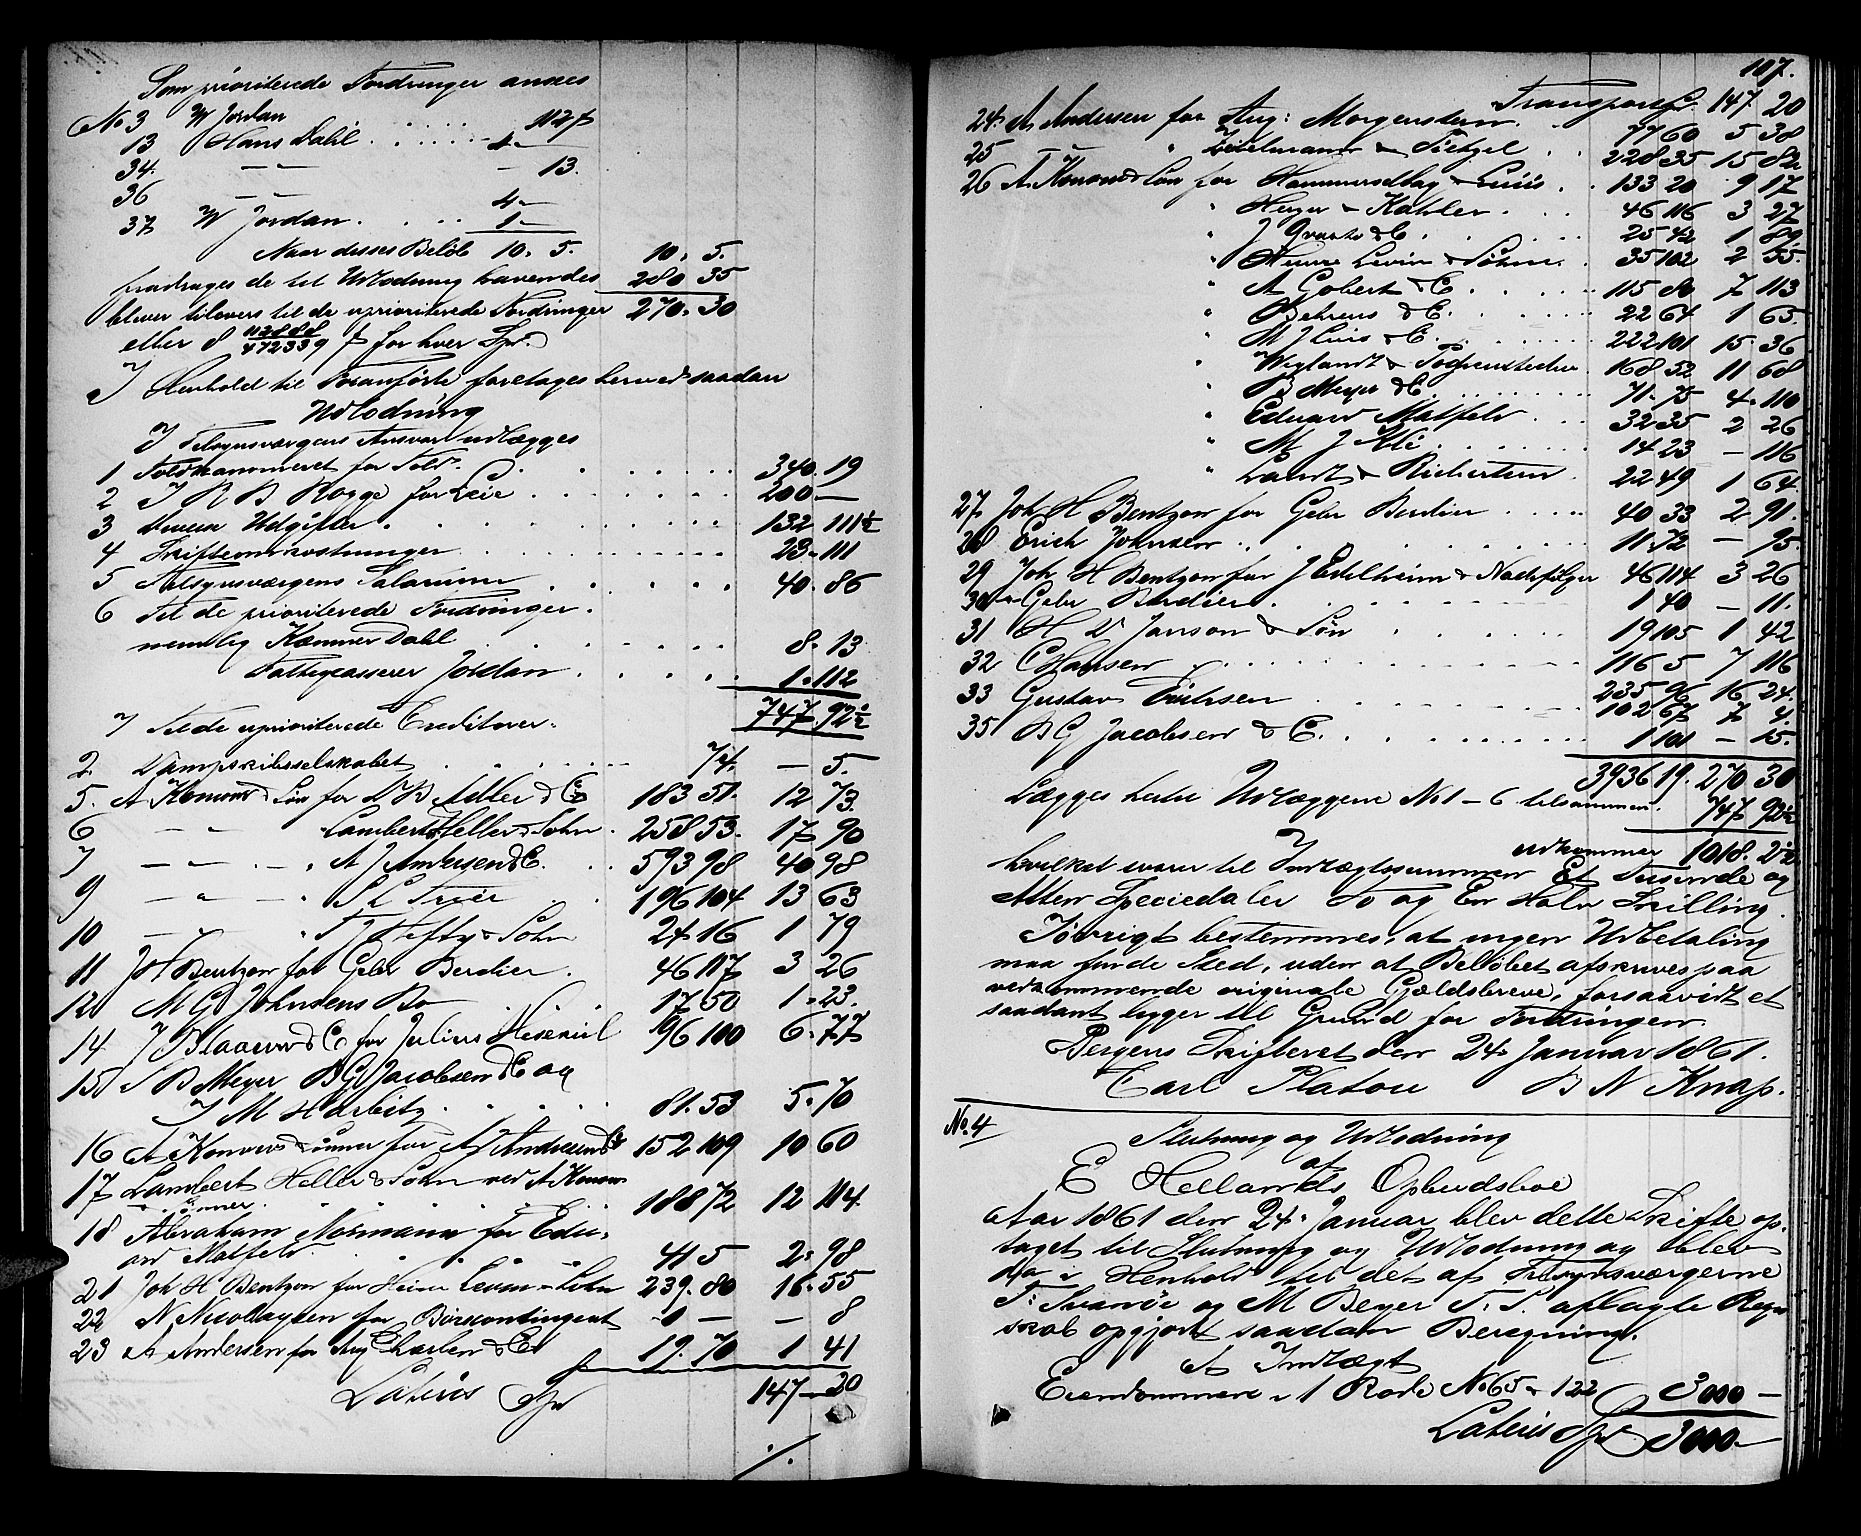 Som prioriterede Fordringer ansees
No 3 W Jordan . . . . 112 β
13 Hans Dahl . . . . 4 –
34. – „ – – 13.
36 – „ – 4 –
37 W Jordan . . . . 1 –
Naar disses Beløb 10. 5. 10. 5.
fradrages de til Udlodning havendes 280 35
bliver tilovers til de uprioriterede Fordringer 270. 30
eller 8 112888/472339 β for hver Spd.
I Henhold til Foranførte foretages herved saadan
Udlodning
I Tilsynsværgens Ansvar udlægges
1 Toldkammeret for Told . . . 340. 19
2 J R B Rogge for Leie . . . 200 –
3 Diverse Udgifter . . . 132. 111½
4 Skifteomkostninger . . . 23. 111
5 Tilsynsværgens Salarium . . . 40. 86
6 Til de prioriterede Fordringer.
nemlig Kæmner Dahl . . . 8. 13
Fattigcasserer Jordan . . . 1. 112
747. 92½
7 Til de uprioriterede Creditorer.
2. Dampskibsselskabet . . . 74. – 5.
5. A Konow & Søn for D B Adler & Co 183 51. 12 73.
6 – „ – Lambert Heller & Sohn. 258 53. 17. 90
7 – „ – „ A J Andersen & C. 593 98 40 98
9 – „ – „ S C Trier 196 104 13 63
10 – – „ T J Hefty & Sohn 24 16 1 79
11 J H Bentzon for Gebr Berdier. 46 117 3 26
12 M G Johnsens Bo 17 50 1. 23.
14 J Blaauw & C for Julius 96 100 6. 77
15 S B Meyer B G Jacobsen & C og
J M Harbitz . . . 81. 53 5. 70
16 A Konow & Sønner for A J Andersen & Co 152 109 10 60
17 Lambert Heller & Sohn ved A Konow
& Sønner 188 72 12 114.
18 Abraham Normann for Edu-
ard Matfeld 41 5 2. 98
21 Joh H Bentzon for Heine Levin & Sohn 239. 80 16. 55
22 N Nicolaysen for Børscontingent 1 – – 8
23 A Andersen for Aug Charlen & Co 19. 70 1 41
Lateris Spd 147 – 20
./.
107.
Transport Spd 147 20
24. A Andersen for Aug: Morgenstern . . 77 60 5 38
25 – „ Zibelmann & Tietzel . . 228 35 15 82
26 A. Konow & Søn for Hammerschlag & Luis . . 133 20 9 17
„ Herzer & Kahler . . . 46 116 3 27
„ J Qvarts & C . . . 25 42 1 89.
„ Heine Levin & Sohn . 35 102 2 55.
„ A Gobert & C . . . 115 80 7 113
„ Behrens & C . . . 22 64 1 65.
„ M J Luis & C . . . 222 101 15. 36
„ Weylandt & 168 32 11 68
„ B Meyer & C . . . 71. 75 4. 110
„ Eduard Matfeld . . . 32 35 2 26
„ M J Ree . . . 14 23 – 116
„ Landt & Richertsen . 22 49 1 64
27 Joh H Bentzon for Gebr Berdier . . . 40 33 2 91.
28 Erich Johnsen . . . 11. 72 – 95.
29 Joh H Bentzon for J Edelheim & Nachfolger 46 114 3 26
30 „ Gebr Berdier . . . 1 40 – 11.
31 H D Janson & Søn . . . 19 105 1 42
32 C Hansen . . . 116 5 7 116
33 Gustav Erichsen . . . 235 96 16 24.
102 67 7 4.
35 B G Jacobsen & C . . . 1 101 – 15.
3936 19. 270 30
Lægges hertil Udlæggene No 1 – 6 tilsammen. 747 92½
udkommer 1018. 2½
hvilket svarer til Indtægtssummen Et Tusinde og
Atten Speciedaler To og En Halv Skilling.
Iøvrigt bestemmes, at ingen Udbetaling
maa finde Sted, uden at Beløbet afskrives paa
vedkommende originale Gjældsbreve, forsaavidt et
saadant ligger til Grund for Fordringen.
Bergens Skifteret den 24. Januar 1861.
Carl Platou B N Knap.
No. 4
Slutning og Udlodning
af
E Hellands Opbudsboe
Aar 1861 den 24. Januar blev dette Skifte op-
taget til Slutning og Udlodning og blev
da i Henhold til det af Tilsynsværgerne
T. Svanøe og M Beyer T. S. aflagte Regn-
skab opgjort saadan Beregning.
A Indtægt
Eiendommene i 1 Rode No 65 & 122 3000 –
Lateris Spd 3000 –